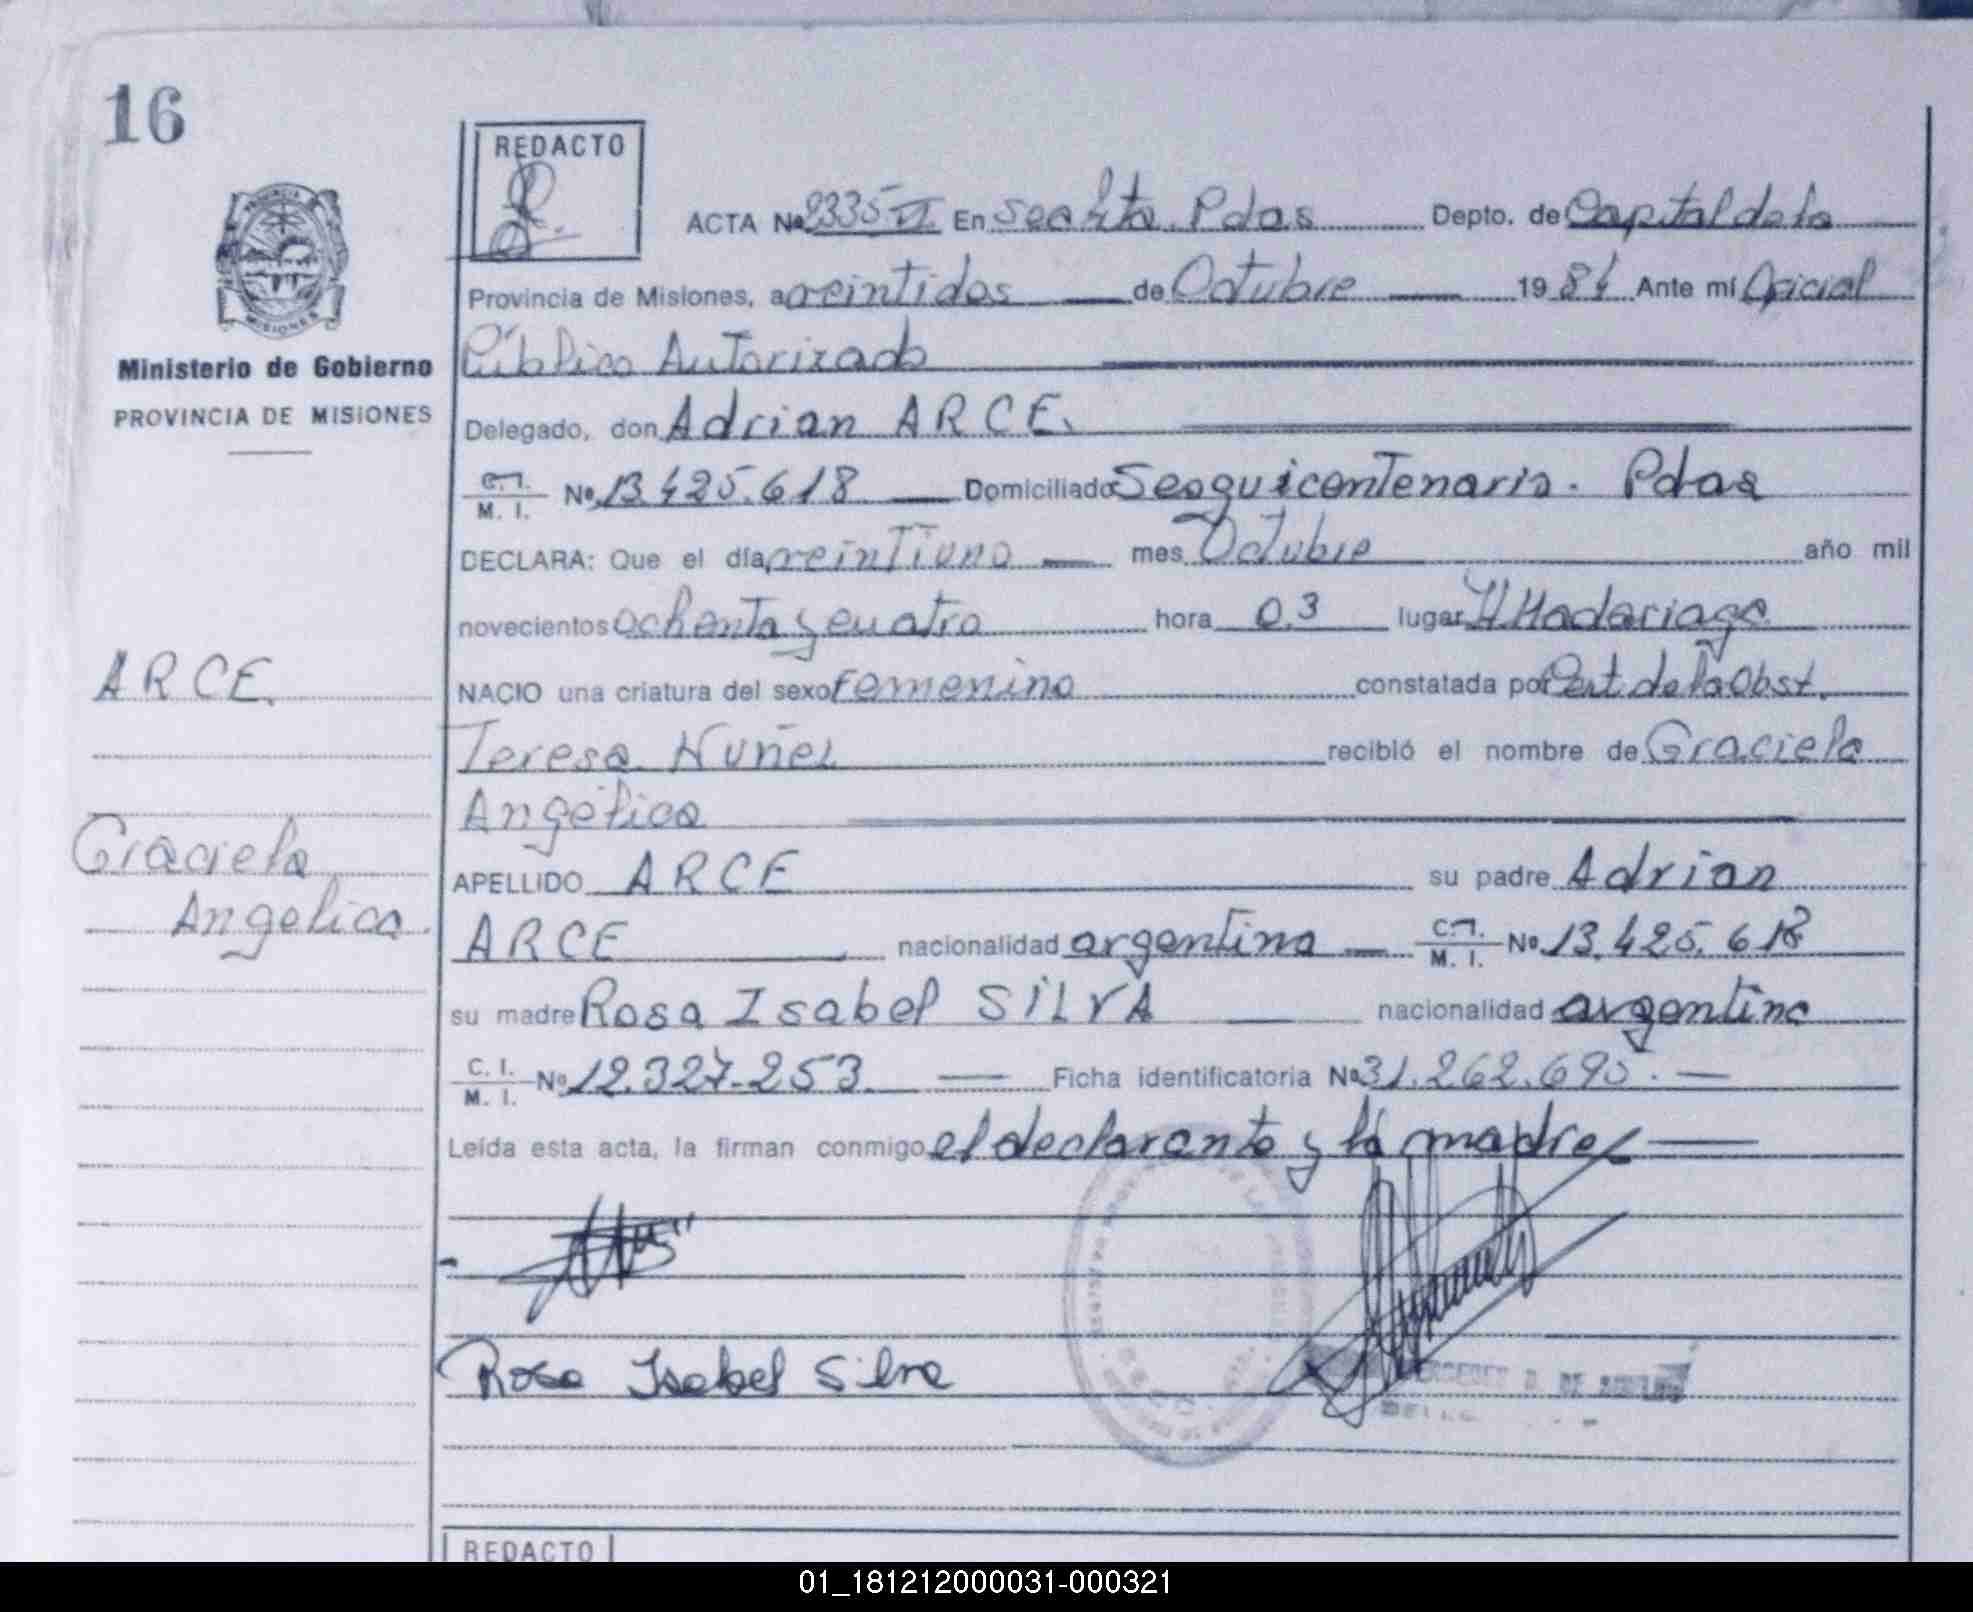 16
REDACTO
ACTA Nº 2335 VI En Sección 6ta. Pdas Depto. de Capital de la
Provincia de Misiones, a veintidos de Octubre 1984 Ante mí Oficial
Público Autorizado
Ministerio de Gobierno
PROVINCIA DE MISIONES
Delegado, don Adrian ARCE.
C.I. M. I. Nº 13.425.618 Domiciliado Sesquicentenario. Pdas
DECLARA: Que el día veintiuno mes Octubre año mil
novecientos ochenta y cuatro hora 03 lugar H Madariaga
ARCE.
NACIO una criatura del sexo femenino constatada por Cert. de la Obst.
Teresa Nuñez recibió el nombre de Graciela
Angélica
Graciela
Angelica.
APELLIDO ARCE su padre Adrian
ARCE nacionalidad argentina C.I. M. I. Nº 13.425.618
su madre Rosa Isabel SILVA nacionalidad argentina
C. I. M. I. Nº 12.327.253 Ficha identificatoria Nº 31.262.695.
Leída esta acta, la firman conmigo el declarante y la madre
Rosa Isabel Silva
REDACTO
01_181212000031-000321